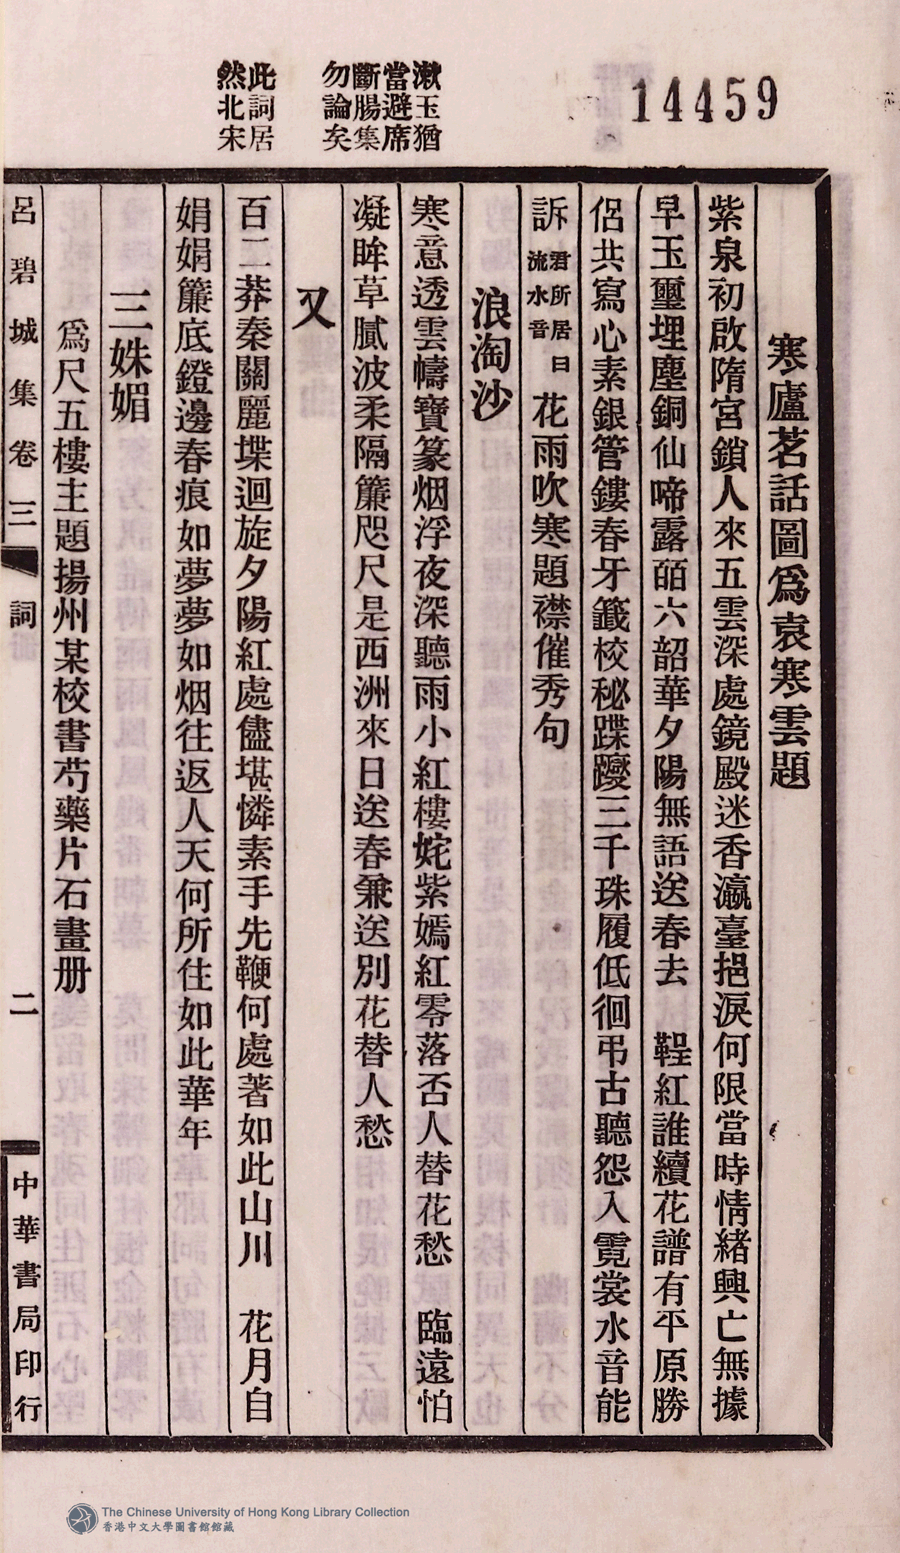 14459
漱玉猶
當避席
斷腸集
勿論矣
此詞居
然北宋
寒廬茗話圖爲袁寒雲題
紫泉初啟隋宮鎖人來五雲深處鏡殿迷香瀛臺挹淚何限當時情緒興亡無據
早玉璽埋塵銅仙啼露皕六韶華夕陽無語送春去　鞓紅誰續花譜有平原勝
侶共寫心素銀管鏤春牙籤校秘蹀躞三千珠履低徊弔古聽怨入霓裳水音能
訴君所居曰流水音花雨吹寒題襟催秀句
浪淘沙
寒意透雲幬寶篆烟浮夜深聽雨小紅樓姹紫嫣紅零落否人替花愁　臨遠怕
凝眸草膩波柔隔簾咫尺是西洲來日送春兼送別花替人愁
又
百二莽秦關麗堞迴旋夕陽紅處儘堪憐素手先鞭何處著如此山川　花月自
娟娟簾底鐙邊春痕如夢夢如烟往返人天何所住如此華年
三姝媚
爲尺五樓主題揚州某校書芍藥片石畫册
呂碧城集卷三　詞　二　中華書局印行
The Chinese University of Hong Kong Library Collection
香港中文大學圖書館館藏